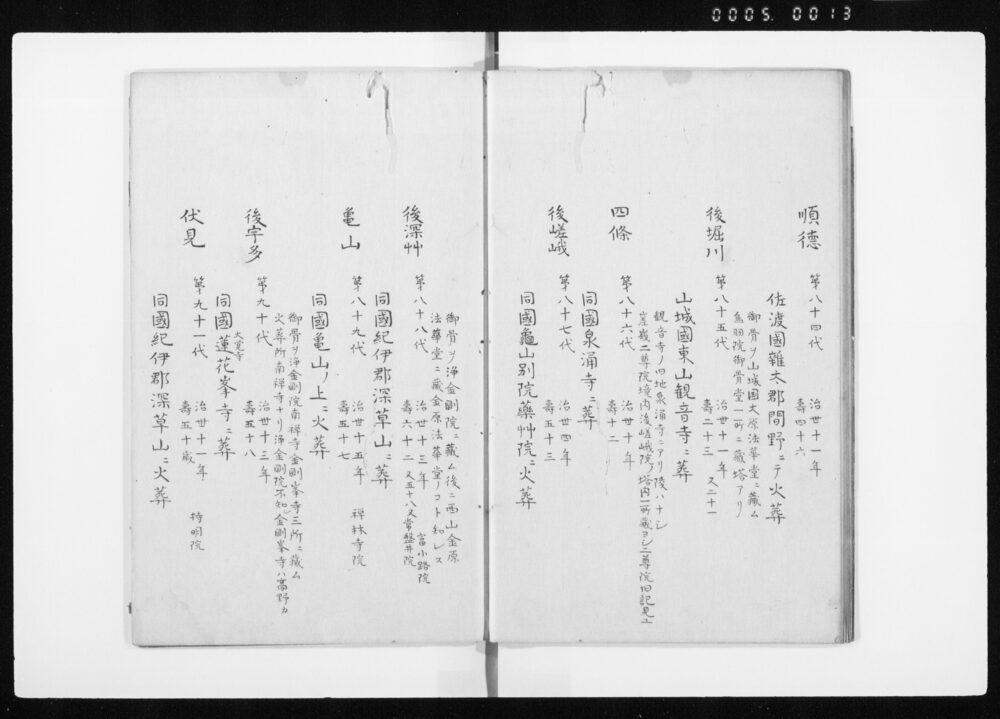 0005.0013
順德
第八十四代
治世十一年
壽四十六
佐渡國雜太郡間野ニテ火葬
御骨ヲ山城國大原法華堂ニ藏ム
鳥羽院御骨堂一所ニ藏塔アリ
後堀川
第八十五代
治世十一年
壽二十三 又二十一
山城國東山観音寺ニ葬
観音寺ノ旧地泉涌寺ニアリ陵ハナシ
嵯峨二尊院境内後嵯峨院ノ塔内一所藏ヨシ二尊院旧記見ユ
四條
第八十六代
治世十年
壽十二
同國泉涌寺ニ葬
後嵯峨
第八十七代
治世四年
壽五十三
同國龜山別院藥艸院ニ火葬
御骨ヲ浄金剛院ニ藏ム後ニ西山金原
法華堂ニ藏金原法華堂ノコト知レス
後深艸
第八十八代
治世十三年 富小路院
壽六十二 又五十八又常盤井院
同國紀伊郡深草山ニ葬
亀山
第八十九代
治世十五年 禪林寺院
壽五十七
同國亀山ノ上ニ火葬
御骨ヲ浄金剛院南禅寺金剛峯寺三所ニ藏ム
火葬所南禅寺ナリ浄金剛院不知金剛峯寺ハ高野カ
後宇多
第九十代
治世十三年
壽五十八
大覚寺
同國蓮花峯寺ニ葬
伏見
第九十一代
治世十一年 持明院
壽五十歳
同國紀伊郡深草山ニ火葬